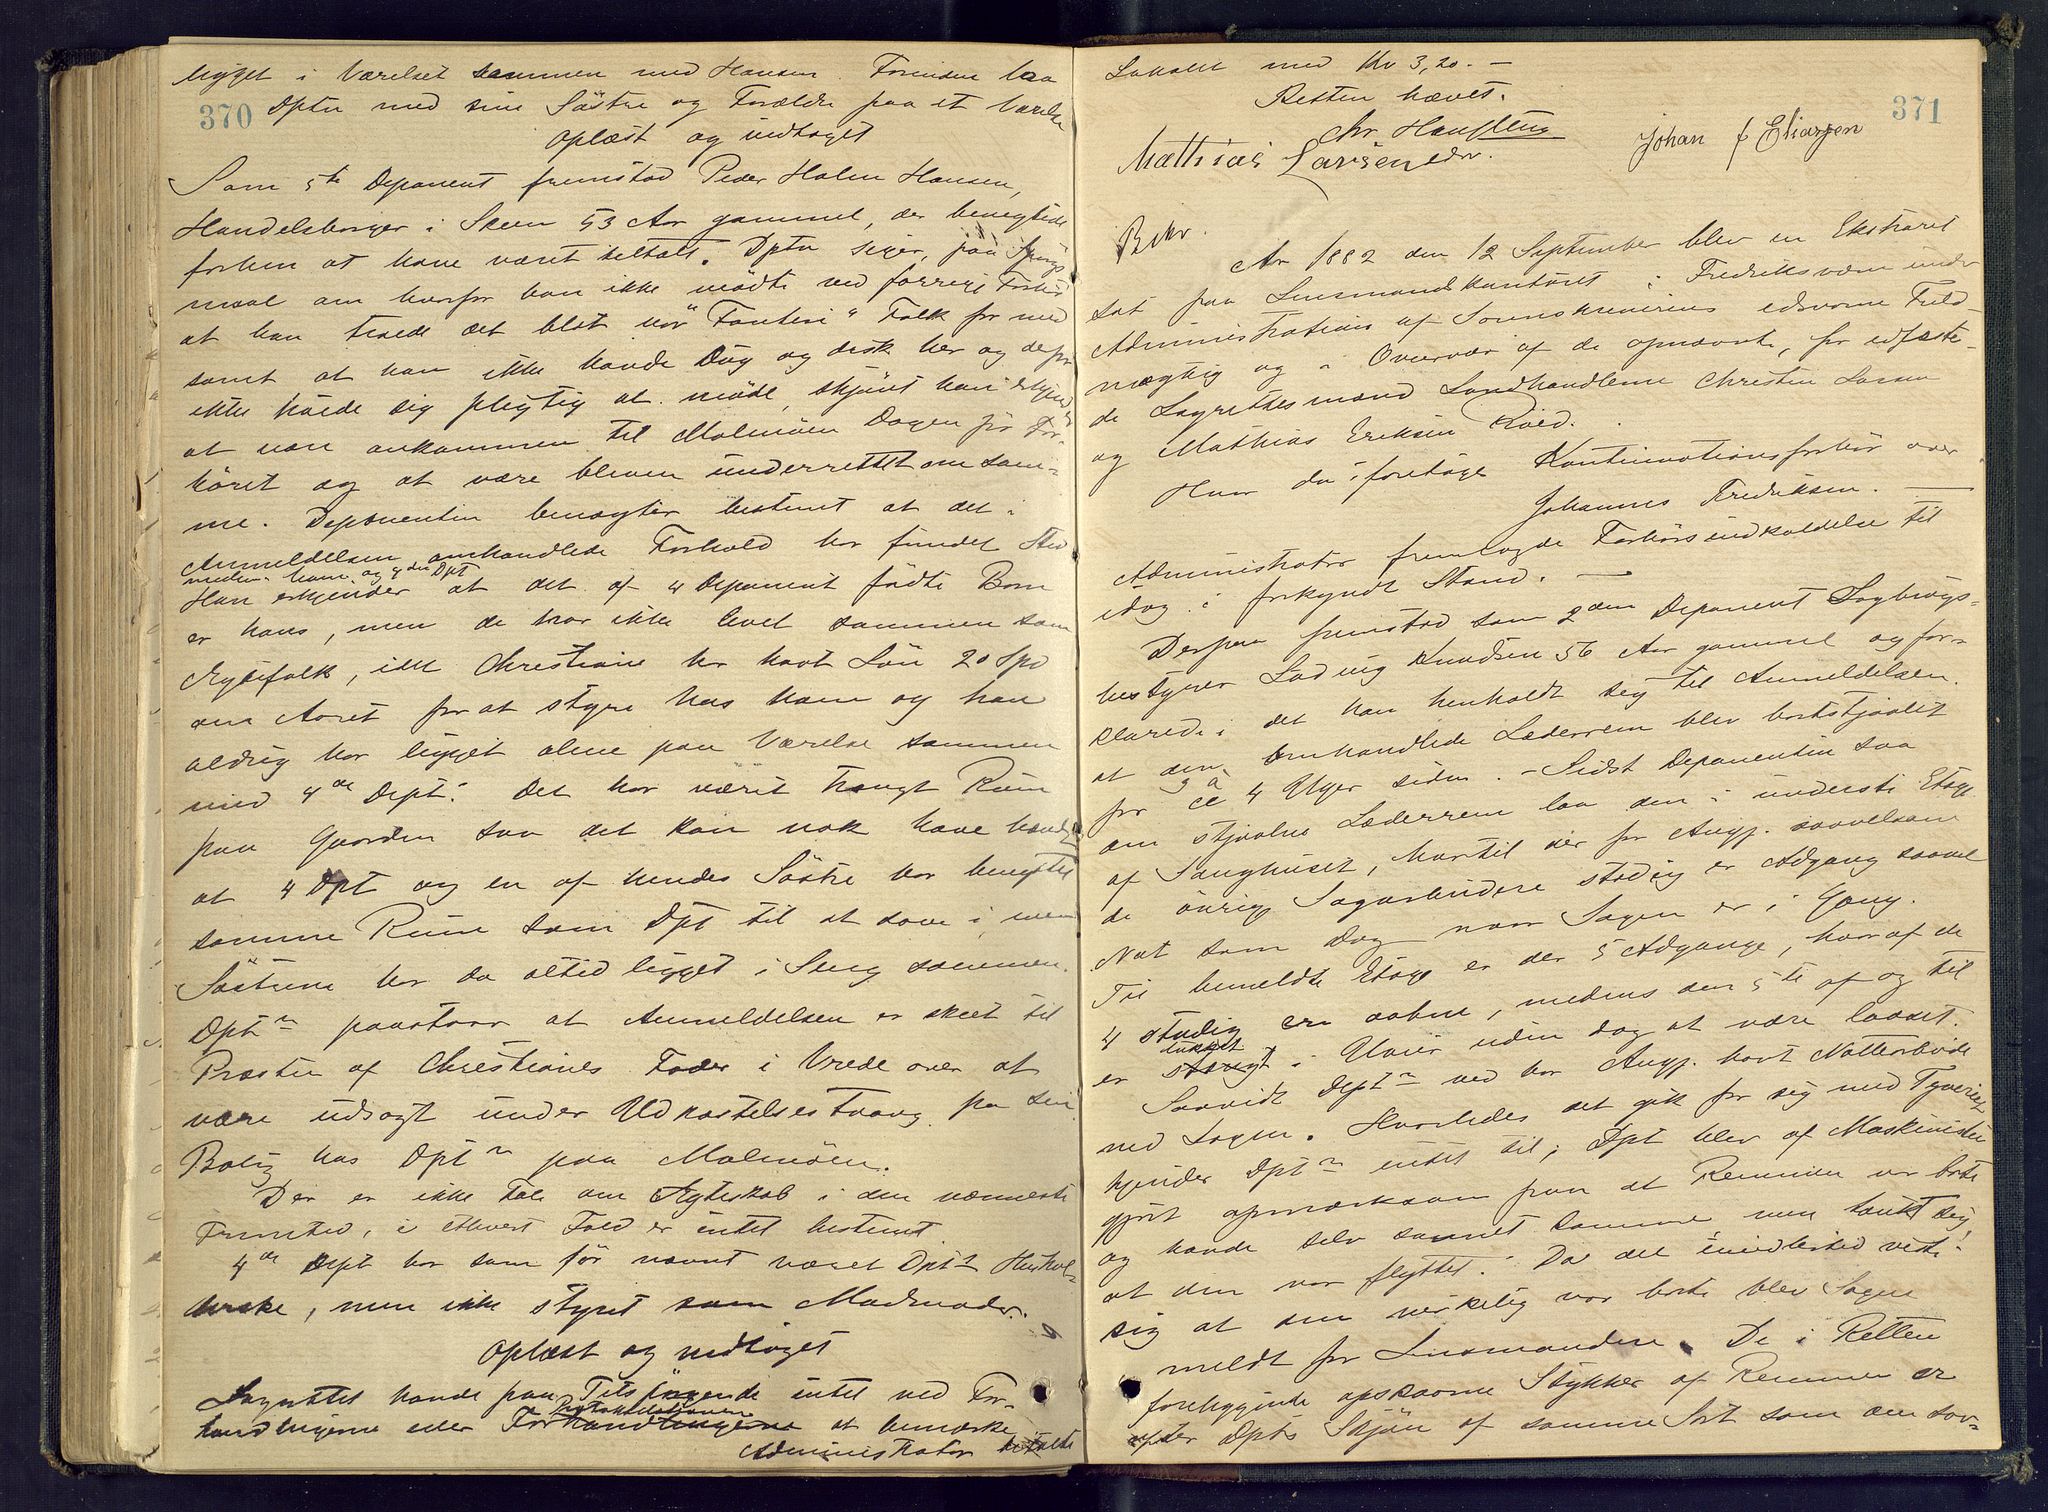 ligget i Værelset sammen med Hansen. Forinden laa
370 Dptn med sine Søstre og Forældre paa et Værelse
Oplæst og vedtaget
Som 5te Deponent fremstod Peder Holm Hansen,
Handelsborger i Skeen 53 Aar gammel, der benegtede
forhen at have været tiltalt. Dptn siger, paa Spørgs
maal om hvorfor han ikke mødte ved forrige Forhør
at han troede det blot var "Fanteri" Folk for med
samt at han ikke havde Dug og disk her og derfor
ikke havde sig pligtig at møde, skjønt han erkjender
at være ankommen til Malmøen Dagen før For-
høret og at være bleven underrettet om sam-
me. Deponentin benægter bestemt at det i
Anmeldelsen omhandlede Forhold har fundet Sted
mellem ham og 4de Dpt
Han erkjender at det af 4 Deponent fødte Barn
er hans, men de har ikke levet sammen som
Ægtefolk, idet Christiane har havt Løn 20 Spd
om Aaret for at styre hus ham og han
aldrig har ligget alene paa Værelse sammen
med 4de Dept. Det har været trangt Rum
paa Gaarden saa det kan nok have hændt
at 4 Dpt og en af hendes Søstre har benyttet
samme Rum som Dpt til at sove i, men
Søstrene har da altid ligget i Seng sammen.
Dptn paastaar at Anmeldelsen er skeet til
Præsten af Christianes Fader i Vrede over at
være udsagt under Udkastelsestvang fra sin
Bolig hos Dptn paa Malmøen.
Der er ikke Tale om Ægteskab i den nærmeste
Fremtid, i ethvert Fald er intet bestemt.
4de Dept har som før nævnt været Dptn Hushol-
derske, men ikke styret som Madmoder.
Oplæst og vedtaget
Lagrettet havde paa Tilspørgende intet ved For-
handlingerne eller Forhandlingerne at bemærke
Protokollationen
Administrator betalte
Lokalet med Kr 3,20. –
Retten hævet.
371
Chr. Hansteen
Mathias Larsen edsv.
Johan J Eliassen
Bekr.
Ar 1882 den 12 September blev en Ekstraret
sat paa Lensmandskontoret i Fredriksværn under
Administration af Sorenskriverens edsvorne Fuld-
mægtig og i Overvær af de opnævnte, før edfæste-
de Lagrettesmænd Landhandlerne Christen Larsen
og Mathias Eriksen Røed.
Hvor da i foretoges Kontinuationsforhør over
Johannes Fredriksen. —
Administrator fremlagde Forhørsindkaldelse til
idag i forkyndt Stand. —
Derpaa fremstod som 2den Deponent Sagbrugs-
bestyrer Ludvig Knudsen 56 Aar gammel og for-
klarede i det han henholdt sig til Anmeldelsen.
at den omhandlede Læderrem blev bortstjaalet
for 3 à 4 Uger siden. – Sidst Deponentin saa
den stjaalne Læderrem laa den i underste Etage
af Saughuset, hvortil der for Angj. saavelsom
de øvrige Sagarbeidere stadig er Adgang saavel
Nat som Dag naar Sagen er i Gang.
Til bemeldte Etage er der 5 Adgange, hvoraf de
4 stadig ere aabne, medens den 5te af og til
er lukket i Uveir uden dog at være laaset.
Saavidt Dptn ved har Angj. havt Natarbeide
ved Sagen. Hvorledes det gik for sig med Tyveriet
kjender Dptn intet til; Dpt blev af Maskinisten
gjort opmærksom paa at Remmen var borte
og havde selv savnet samme men tænkt sig
at den var flyttet. Da det imidlertid viste
sig at den virkelig var borte blev Sagen
meldt for Lensmanden. De i Retten
foreliggende opskaarne Stykker af Remmen er
efter Dpts Skjøn af samme Sort som den sav-